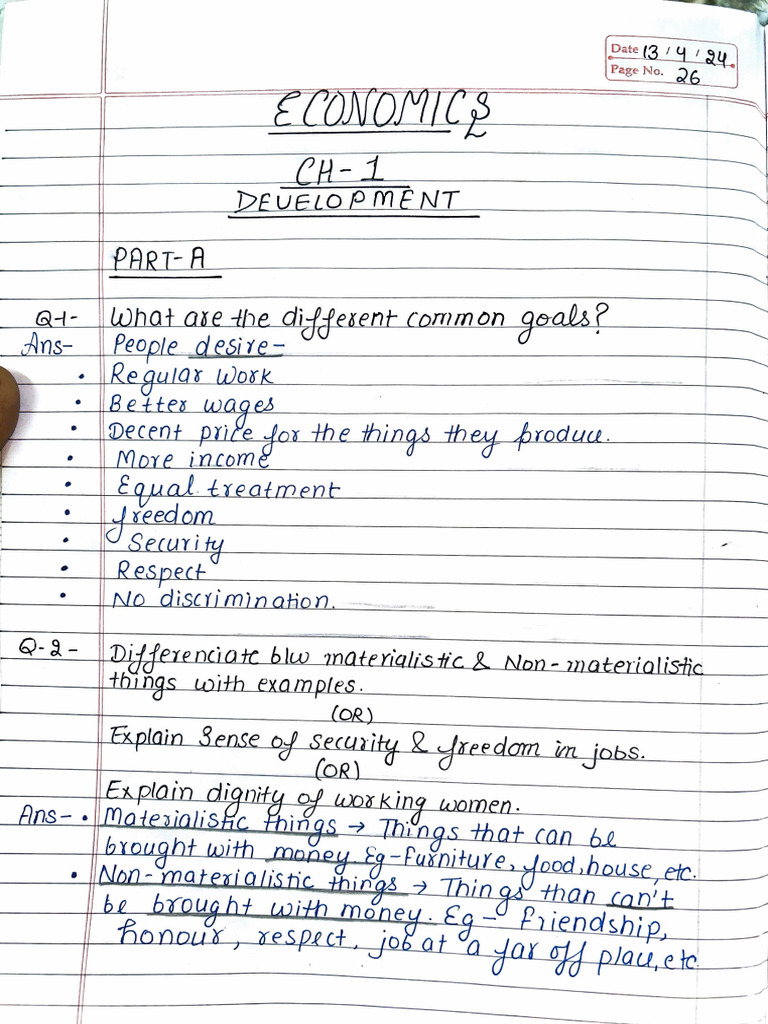 Date 13/4/24
Page No. 26
ECONOMICS
CH-1
DEVELOPMENT
PART-A
Q-1- What are the different common goals?
Ans- People desire-
• Regular work
• Better wages
• Decent price for the things they produce.
• More income
• Equal treatment
• freedom
• Security
• Respect
• No discrimination.
Q-2- Differenciate b/w materialistic & Non-materialistic
things with examples.
(OR)
Explain Sense of security & freedom in jobs.
(OR)
Explain dignity of working women.
Ans- • Materialistic things → Things that can be
brought with money. Eg-Furniture, food, house, etc.
• Non-materialistic things → Things than can't
be brought with money. Eg- friendship,
honour, respect, job at a far off place, etc